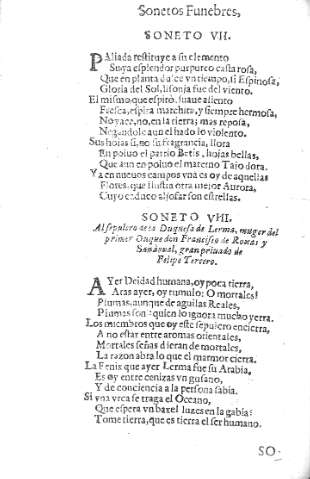 Sonetos Funebres,
SONETO VII.
PAliada restituye a su elemento
Su ya esplendor purpureo casta rosa,
Que en planta dulce vn tiempo, si Espinosa,
Gloria del Sol, lisonja fue del viento.
El mismo que espirò, suaue aliento
Fresca, espira marchita, y siempre hermosa,
No yace, no, en la tierra; mas reposa,
Negandole aun el hado lo violento.
Sus hojas si, no su fragrancia, llora
En poluo el patrio Betis, hojas bellas,
Que aun en poluo el materno Tajo dora.
Ya en nueuos campos vna es oy de aquellas
Flores, que ilustra otra mejor Aurora,
Cuyo caduco aljofar son estrellas.
SONETO VIII.
Al sepulcro de la Duquesa de Lerma, muger del
primer Duque don Francisco de Roxas y
Sandoual, gran priuado de
Felipe Tercero.
AYer Deidad humana, oy poca tierra,
Aras ayer, oy tumulo: O mortales!
Plumas, aunque de aguilas Reales,
Plumas son: quien lo ignora mucho yerra.
Los miembros que oy este sepulcro encierra,
A no estar entre aromas orientales,
Mortales señas dieran de mortales,
La razon abra lo que el marmor cierra.
La Fenix que ayer Lerma fue su Arabia,
Es oy entre cenizas vn gusano,
Y de conciencia a la persona sabia.
Si vna vrca se traga el Oceano,
Que espera vn baxel luzes en la gabia:
Tome tierra, que es tierra el ser humano.
SO-